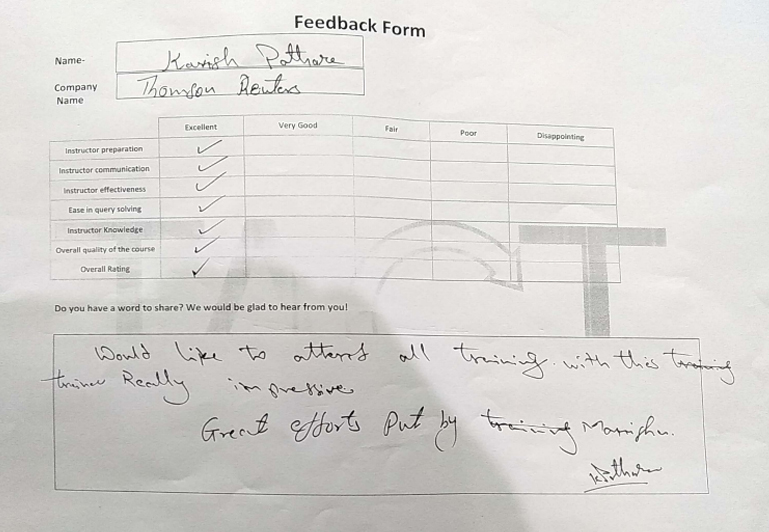 Feedback Form
Name- Kavish Pathare
Company Name Thomson Reuters
Excellent Very Good Fair Poor Disappointing
Instructor preparation ✓
Instructor communication ✓
Instructor effectiveness ✓
Ease in query solving ✓
Instructor Knowledge ✓
Overall quality of the course ✓
Overall Rating ✓
Do you have a word to share? We would be glad to hear from you!
Would like to attend all training with this training
trainer Really impressive
Great efforts Put by training
KPathare